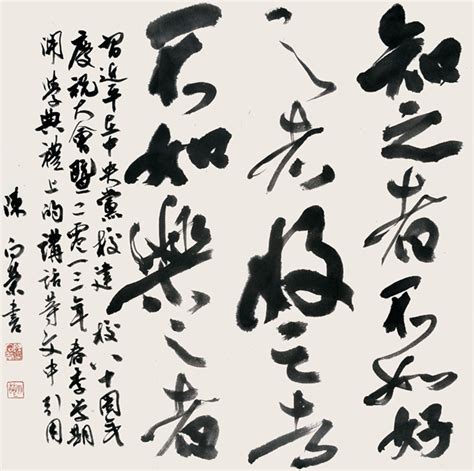 知之者不如好
之者好之者
不如樂之者
習近平在中央黨校建校八十周年
慶祝大會暨二零一三年春季學期
開學典禮上的講話等文中引用
陳向榮書